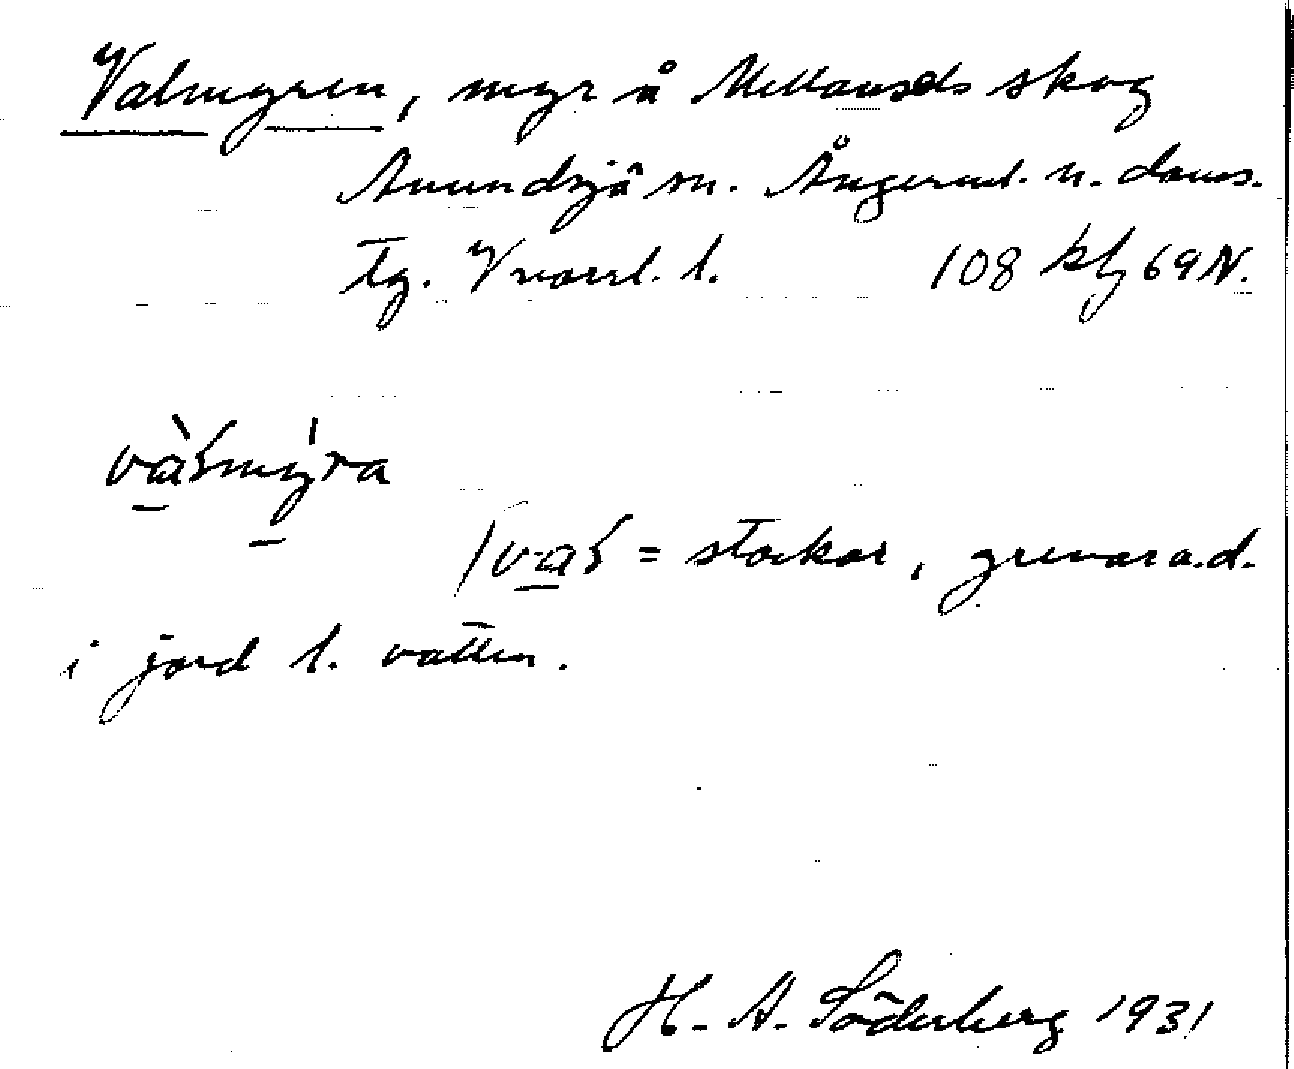 Valmyren, myr å Mellansels skog
Anundsjö sn. Ångerml. n. doms.
tg. Vnorrl. l. 108 blz 69 N.
va̱ʃmy̱ra
/va̱ʃ = stockar, grenar a.d.
i jord l. vatten.
H. A. Söderberg 1931